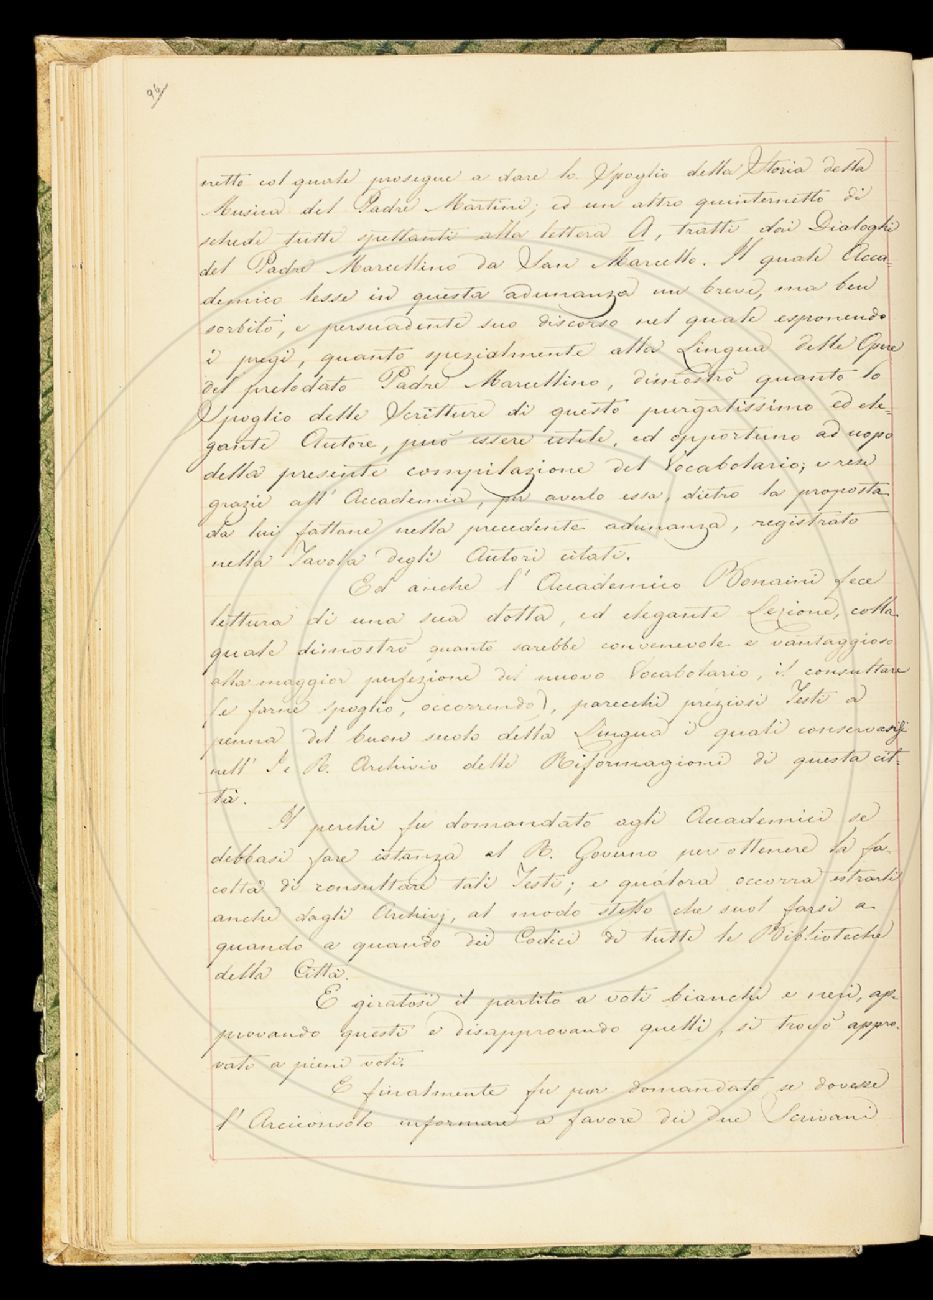 96
netto col quale prosegue a dare lo Spoglio della Storia della
Musica del Padre Martini; ed un altro quinternetto di
schede tutte spettanti alla lettera A, tratte dai Dialoghi
del Padre Marcellino da San Marcello. Il quale Acca-
demico lesse in questa adunanza un breve, ma ben
sorbito, e persuadente suo discorso nel quale esponendo
i pregi, quanto spezialmente alla Lingua delle Opere
del prelodato Padre Marcellino, dimostrò quanto lo
Spoglio delle Scritture di questo purgatissimo ed ele-
gante Autore, può essere utile, ed opportuno ad uopo
della presente compilazione del Vocabolario; e rese
grazie all' Accademia, per averlo essa, dietro la proposta
da lui fattane nella precedente adunanza, registrato
nella Tavola degli Autori citati.
Ed anche l' Accademico Bonaini fece
lettura di una sua dotta, ed elegante Lezione, colla
quale dimostrò quanto sarebbe convenevole e vantaggioso
alla maggior perfezione del nuovo Vocabolario, il consultare
(e farne spoglio, occorrendo), parecchi preziosi Testi a
penna del buon secolo della Lingua i quali conservasi
nell' I. e R. Archivio delle Riformagioni di questa cit-
tà.
Il perchè fu domandato agli Accademici se
debbasi fare istanza al R. Governo per ottenere la fa-
coltà di consultare tali Testi; e qualora occorra estrarli
anche dagli Archivj, al modo stesso che suol farsi a
quando a quando dei Codici di tutte le Biblioteche
della Città.
E giratosi il partito a voti bianchi e neri, ap-
provando questi e disapprovando quelli, si trovò appro-
vato a pieni voti.
E finalmente fu pur domandato se dovesse
l' Arciconsolo informare a favore dei due Scrivani